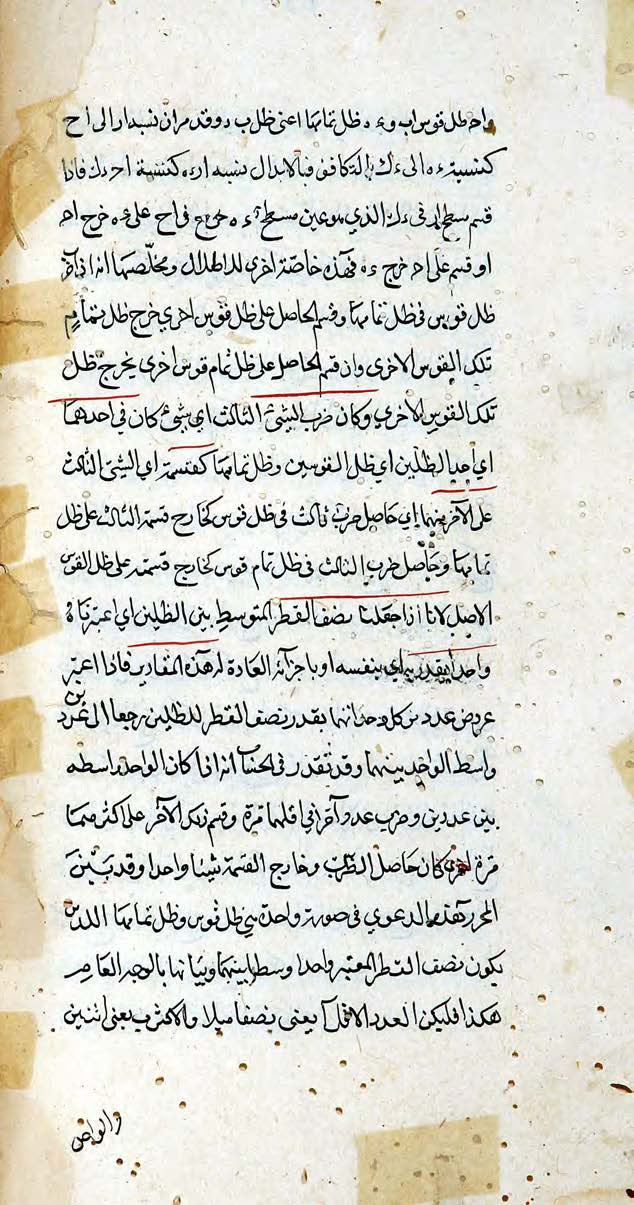 واح ظل قوس اب و ء ه ظل تمامها اعنى ظل ب د وقد مر ان نسبة ار الى اح
كنسبة ء ه الى ء ك بالتكافؤ فبالابدال نسبة ار ء ه كنسبة اح ء ك فاذا
قسم سطح ار فى ء ك الذي هو عين سطح ء ه فى اح على ء ه خرج اح
او قسم على اح خرج ء ه فهذه خاصة اخرى للاظلال ومخلصها انه اذا ضرب
ظل قوس فى ظل تمامها وقسم الحاصل على ظل قوس اخرى خرج ظل تمام
تلك القوس الاخرى وان قسم الحاصل على ظل تمام قوس اخرى يخرج ظل
تلك القوس الاخرى وكان ضرب الشئ الثالث اي شئ كان فى احدهما
اي احد الظلين اي ظل القوسين وظل تمامها كقسمة اي الشئ الثالث
على الآخر منهما اي حاصل ضرب ثالث فى ظل قوس كخارج قسمة الثالث على ظل
تمامها وحاصل ضرب الثالث فى ظل تمام قوس كخارج قسمته على ظل القوس
الاصل لانا اذا جعلنا نصف القطر المتوسط بين الظلين اي اعتبرناه
واحدا بقدر به اي بنفسه او باجزائه العادة له هذه المقادير فاذا اعتبر
عروض عدد من كل وحداتها بقدر نصف القطر للظلين رجعا الى عددين
واسط الواحد بينهما وقد تقدر فى الحساب انه اذا كان الواحد واسطه
بين عددين وضرب عدد آخر فى اقلهما مرة وقسم ذلك الآخر على اكثرهما
مرة اخرى كان حاصل الضرب وخارج القسمة شيئا واحدا وقد بين
المحرر هذه الدعوي فى صورة واحدة هى ظل قوس وظل تمامها اللذين
يكون نصف القطر المعتبر واحدا وسطا بينهما وبيانها بالوجه العام
هكذا فليكن العدد الاقل آ يعنى نصفا مثلا والاكثر ب يعنى اثنين
والواحد